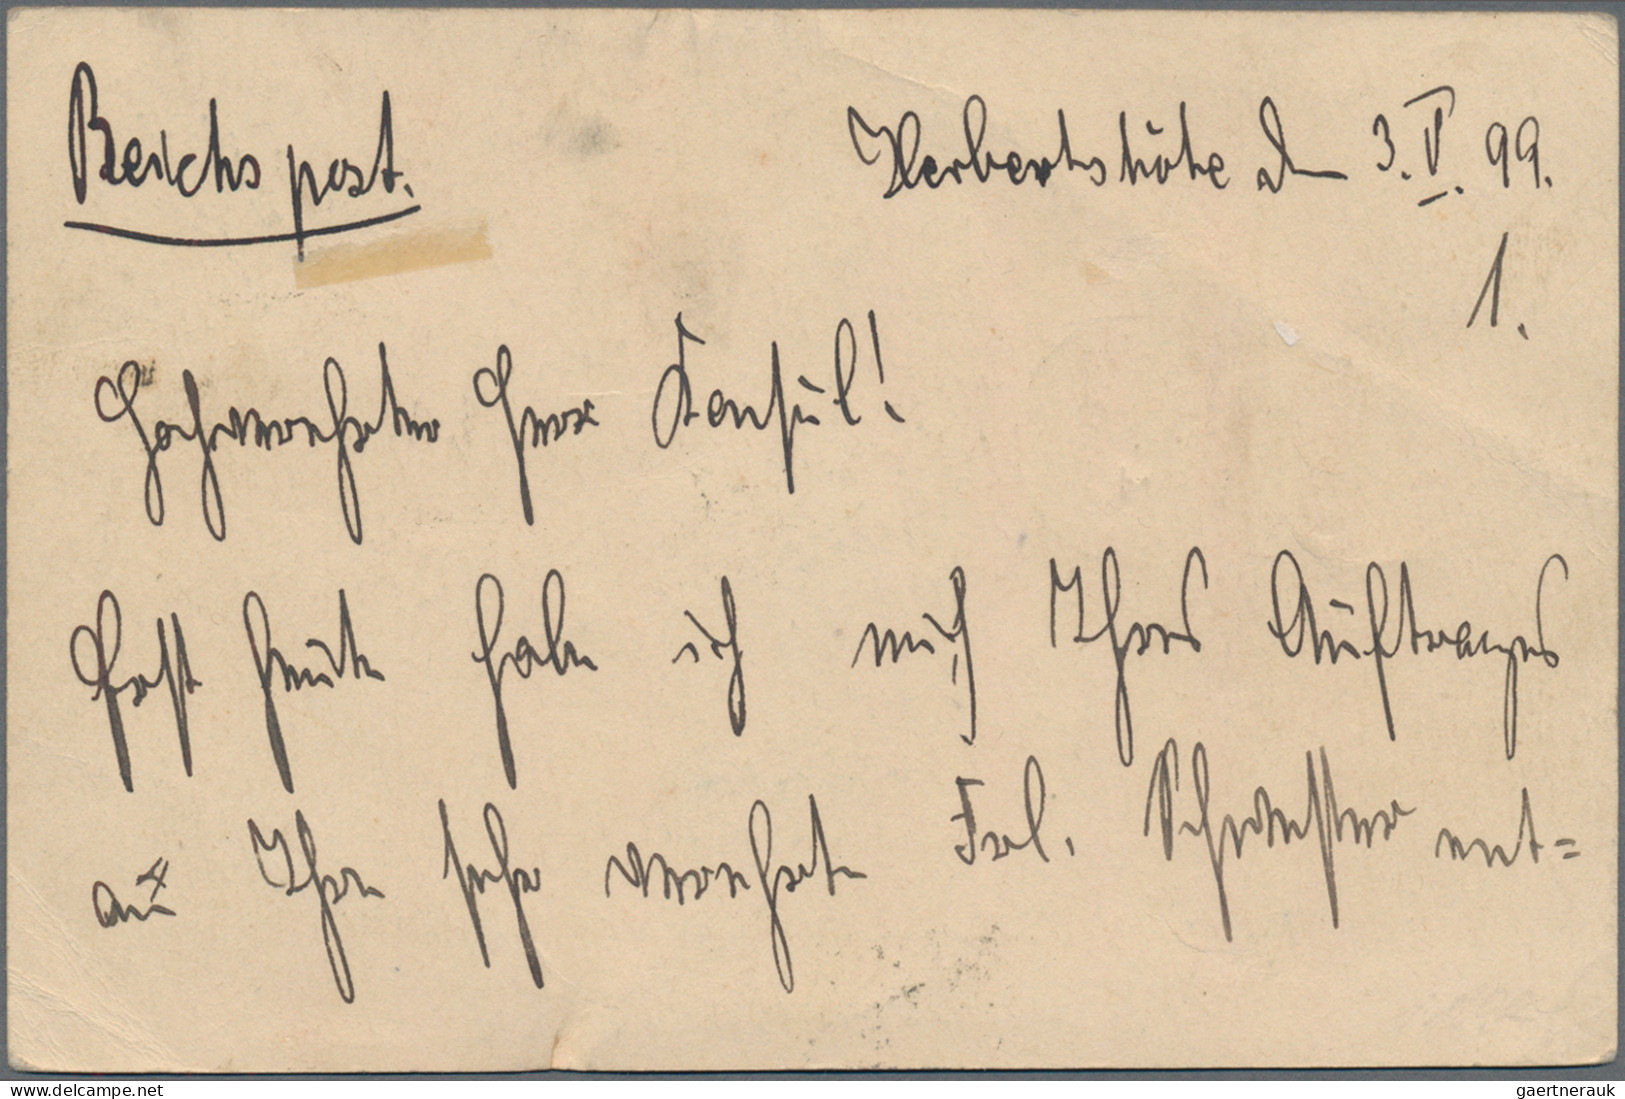 Reichspost.
Herbertshöhe den 3. V. 99.
1.
Hochverehrter Herr Konsul!
Erst heute habe ich mich Ihres Auftrages
an Ihre sehr verehrte Frl. Schwester ent=
delcampe.net
gaertnerauk